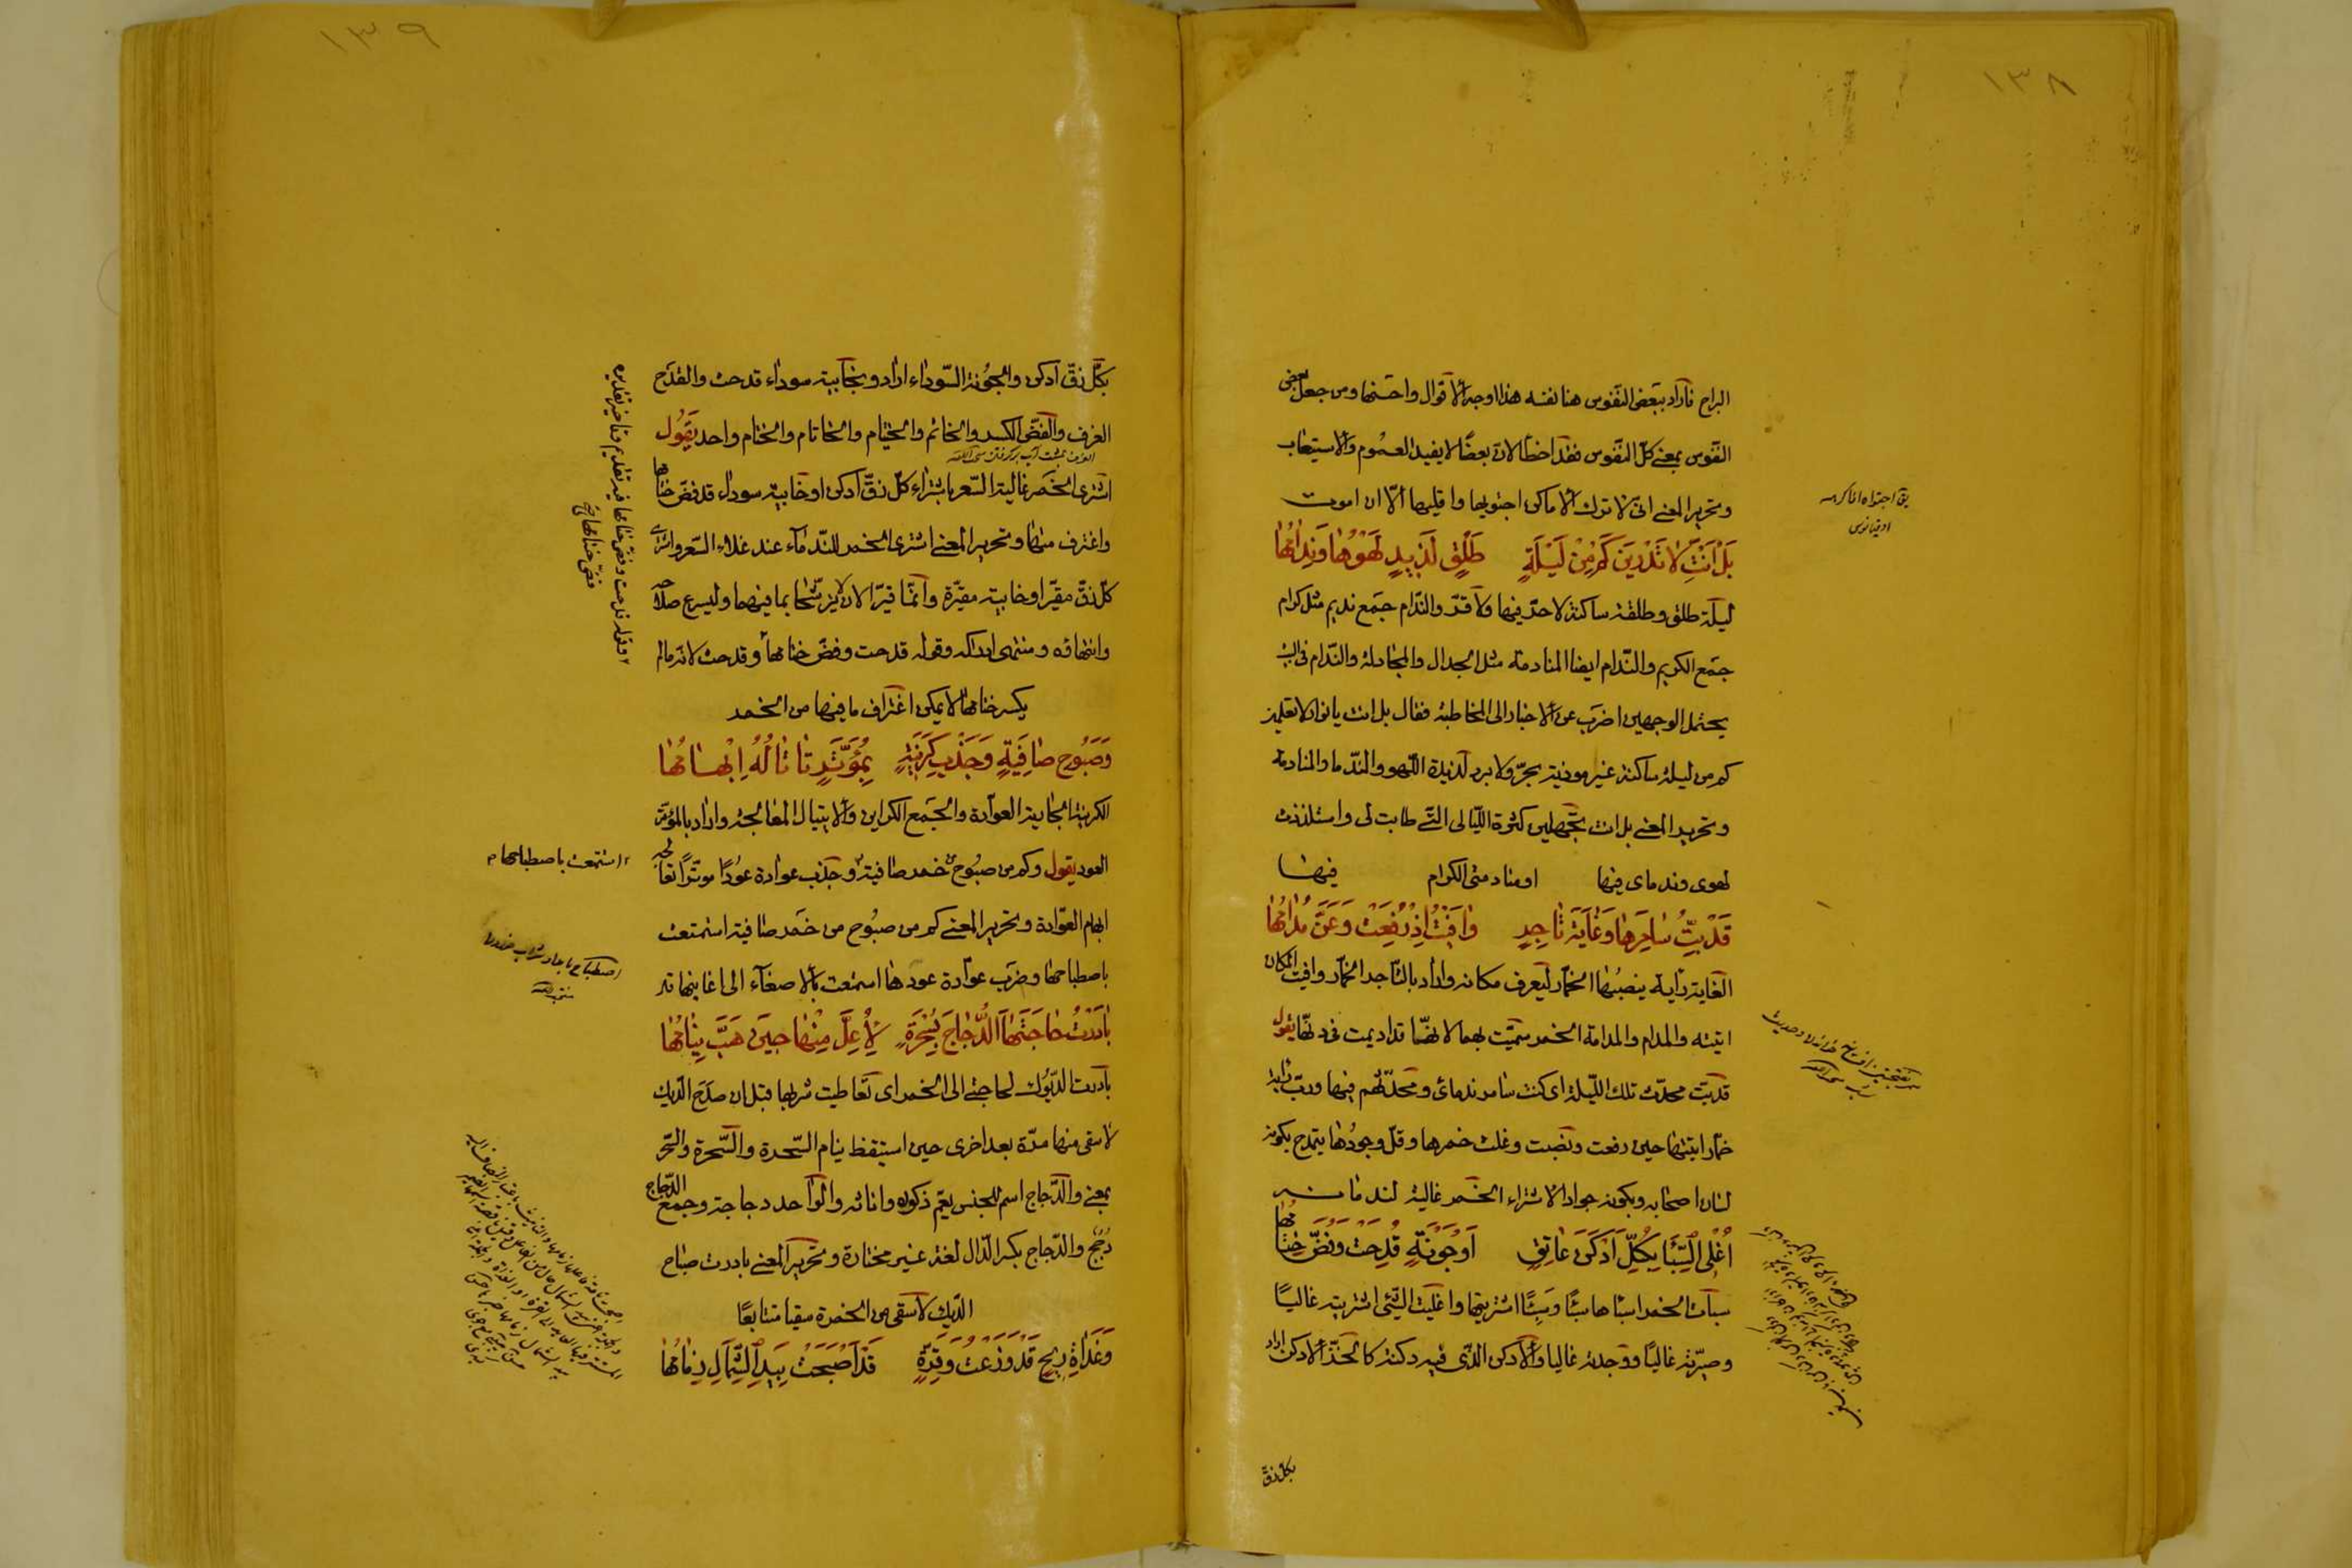 ١٣٨
البراح فاراد ببعض النفوس هنا نفسه هذا اوجه الاقوال واحسنها ومن جعل بعض
النفوس بمعنى كل النفوس فقد اخطأ لان بعضا لا يفيد العموم والاستيعاب
وتحرير المعنى انى لا ترك الاماكن اجتويها واقليها الا ان اموت
بَلْ اَنْتِ لا تَدْرينَ كَمْ مِنْ لَيْلَةٍ طَلْقٍ لَذيذٍ لَهْوُها وَنِدامُها
ليلة طلق وطلقة ساكنة لا حرّ فيها ولا قرّ والندام جمع نديم مثل كرام
جمع الكريم والندام ايضا المنادمة مثل الجدال والمجادلة والندام فى البيت
يحتمل الوجهين اضرب عن الاخبار الى المخاطبة فقال بل انت يا نوار لا تعلمين
كم من ليلة ساكنة غير موذية بحرّ ولا برد لذيذة اللهو والندما والمنادمة
وتحرير المعنى بل انت تجهلين كثرة الليالى التى طابت لى واستلذذت
لهوى وندماى فيها او منادمتى الكرام فيها
قَدْ بِتُّ سامِرَها وَغايَةَ تاجِرٍ وافَيْتُ اِذْ رُفِعَتْ وَعَزَّ مُدامُها
الغاية راية ينصبها الخمار ليعرف مكانه واراد بالتاجر الخمار وافيت المكان
اتيته والمدام والمدامة الخمر سميت بهما لانها قد اديمت فى دنها يقول
قد بتّ محدث تلك الليلة اى كنت سامر ندمائى ومحدثهم فيها وربّ راية
خمار اتيتها حين رفعت ونصبت وغلت خمرها وقل وجودها يتمدح بكونه
لسان اصحابه وبكونه جوادا لاشتراء الخمر غالية لندمائه
اُغْلِى السِّبَاءَ بِكُلِّ اَدْكَنَ عاتِقٍ اَوْ جَوْنَةٍ قُدِحَتْ وَفُضَّ خِتامُها
سبات الخمر اسباها سبئا وسباء اشتريتها واغليت الشئ اشتريته غاليا
وصيرته غاليا ووجدته غاليا والادكن الذى فيه دكنة كالخز الادكن اراد
بكل زق
١٣٩
بكل زق ادكن والجونة السوداء اراد وبخابية سوداء قدحت والقدح
الغرف والفض الكسر والخاتم والختام والخاتام والختام واحد يقول
اشترى الخمر غالية السعر باشتراء كل زق ادكن او خابية سوداء قد فض ختامها
واغترف منها وتحرير المعنى اشترى الخمر للندماء عند غلاء السعر واشترى
كل زق مقير او خابية مقيرة وانما قيرا لان لا يرشحا بما فيهما وليسرع صلاحه
وانتهائه ومنتهى ادراكه وقوله قدحت وفض ختامها وقدحت لانه ما لم
يكسر ختامها لا يمكن اغتراف ما فيها من الخمر
وَصَبُوحِ صافِيَةٍ وَجَذْبِ كَرينَةٍ بِمُوَتَّرٍ تَأْتالُهُ اِبْهامُها
الكرينة الجارية العوادة والجمع الكراين والايتيال المعالجة واراد بالموتر
العود يقول وكم من صبوح خمر صافية وجذب عوادة عودا موترا تعالجه
ابهام العوادة وتحرير المعنى كم من صبوح من خمر صافية استمتعت
باصطباحها وضرب عوادة عودها استمتعت بالاصغاء الى اغانيها
بادَرْتُ حاجَتَهَا الدَّجاجَ بِسُحْرَةٍ لِاُعِلَّ مِنْها حينَ هَبَّ نِيامُها
بادرت الديوك لحاجتى الى الخمر اى تعاطيت شربها قبل ان صدح الديك
لاسقى منها مرة بعد اخرى حين استيقظ نيام السحرة والسحرة والسحر
بمعنى والدجاج اسم للجنس يعم ذكوره واناثه والواحد دجاجة وجمع الدجاج
دجج والدجاج بكسر الدال لغة غير مختارة وتحرير المعنى بادرت صباح
الديك لاسقى من الخمرة سقيا متتابعا
وَغَداةِ ريحٍ قَدْ وَزَعْتُ وَقِرَّةٍ قَدْ اَصْبَحَتْ بِيَدِ الشَّمالِ زِمامُها
استمتعت باصطباحها